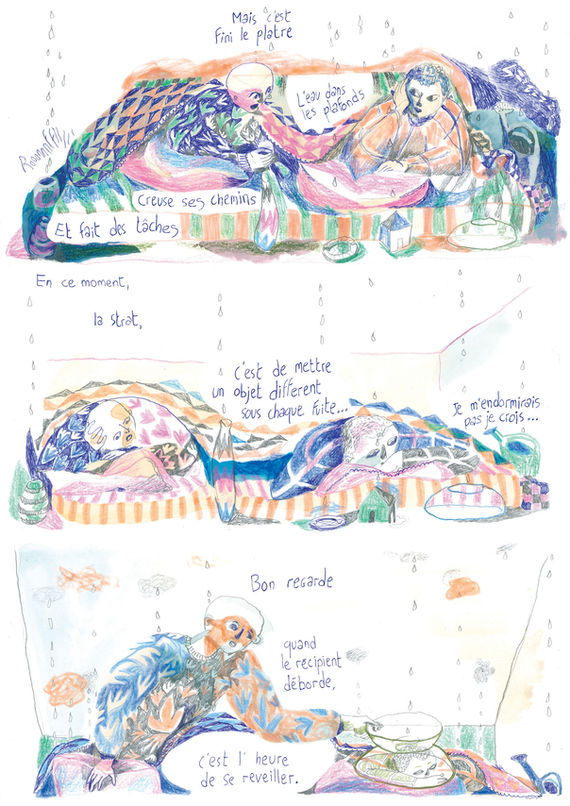 Mais c'est
Fini le platre
L'eau dans
les plafonds
Creuse ses chemins
Et fait des tâches
En ce moment,
la strat,
c'est de mettre
un objet different
sous chaque fuite...
Je m'endormirais
pas je crois...
Bon regarde
quand
le recipient
déborde,
c'est l'heure
de se reveiller.